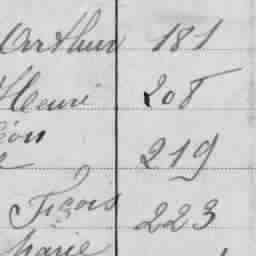 Arthur 181
Henri 208
Léon
219
Fçois 223
Marie